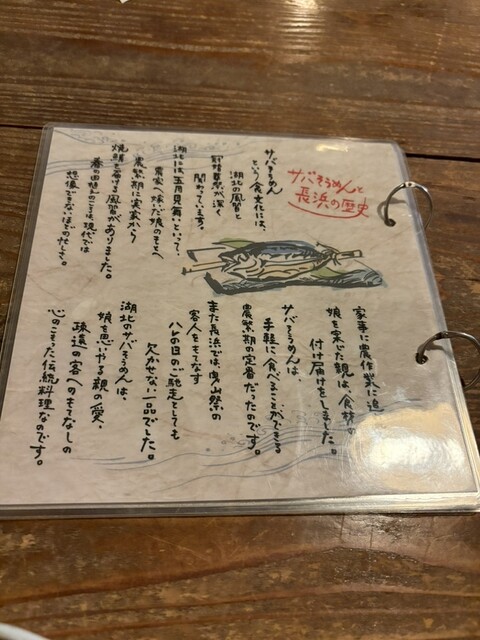 サバそうめんと
長浜の歴史
サバそうめん
という食文化には、
湖北の風習と
曳山祭が深く
関わっています。
湖北には五月見舞いといって、
農家へ嫁いだ娘のもとへ
農繁期に実家から
焼鯖を届ける風習がありました。
春の田植えのころは、現代では
想像できないほどの忙しさ。
家事に農作業に追
娘を案じた親は、食材の
付け届けをしました。
サバそうめんは、
手軽に食べることができる
農繁期の定番だったのです。
また長浜では、曳山祭の
客人をもてなす
ハレの日のご馳走としても
欠かせない一品でした。
湖北のサバそうめんは、
娘を思いやる親の愛、
遠道の客へのもてなしの
心のこもった伝統料理なのです。